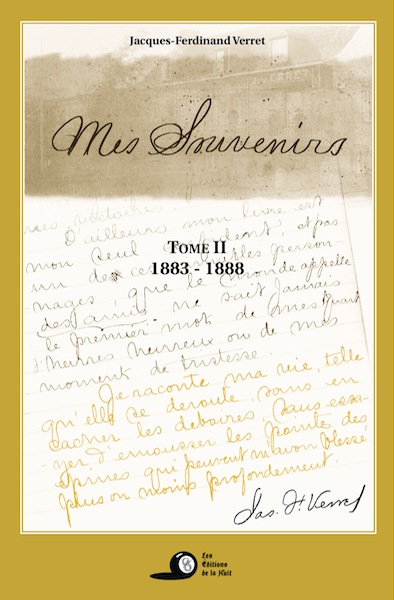 Jacques-Ferdinand Verret
J. VERRET
Mes Souvenirs
D'ailleurs mon livre est
mon seul confident, et pas
Tome II
1883 - 1888
un de ces personnages, que le monde appelle
des amis ne sait jamais
le premier mot de mes
d'heures heureux ou de mes
moment de tristesse.
Je raconte ma vie, telle
qu'elle se déroule, sans en
cacher les déboires, sans essa-
yer d'émousser les pointe des
épines qui peuvent m'avoir blessé
plus ou moins profondément.
Jas. Fd. Verret
Les
Éditions
de la Nuit